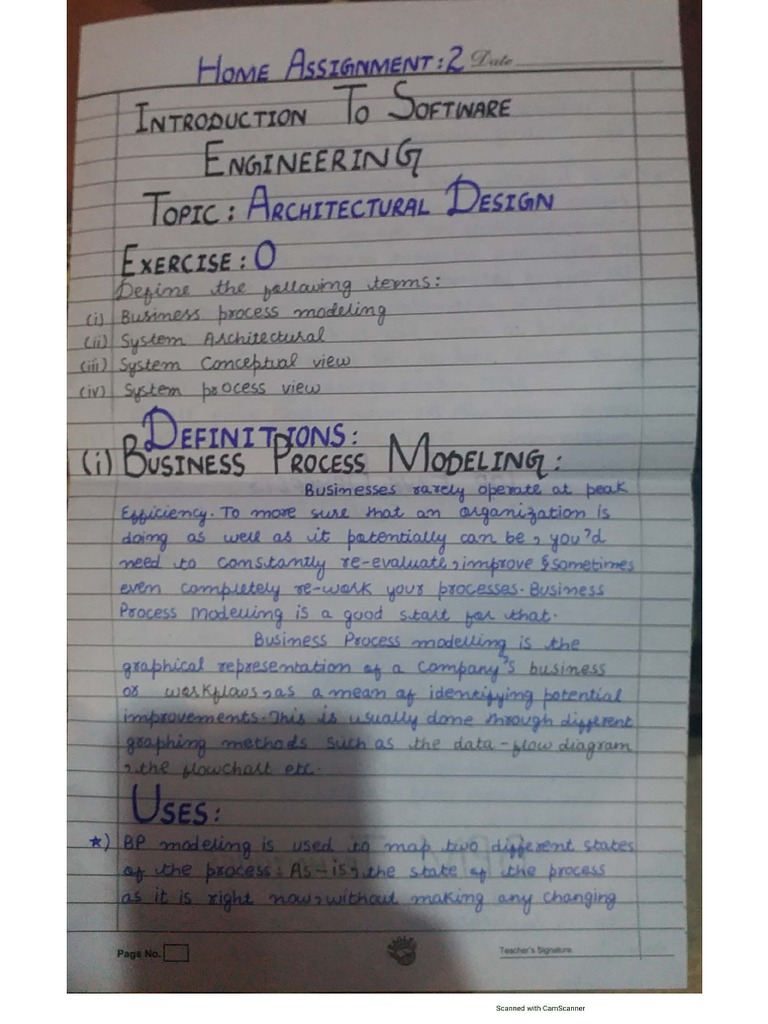 HOME ASSIGNMENT: 2 Date
INTRODUCTION TO SOFTWARE
ENGINEERING
TOPIC: ARCHITECTURAL DESIGN
EXERCISE: 0
Define the following terms:
(i) Business process modeling
(ii) System Architectural
(iii) System Conceptual view
(iv) System process view
DEFINITIONS:
(i) BUSINESS PROCESS MODELING:
Businesses rarely operate at peak
Efficiency. To more sure that an organization is
doing as well as it potentially can be, you'd
need to constantly re-evaluate, improve & sometimes
even completely re-work your processes. Business
Process modelling is a good start for that.
Business Process modelling is the
graphical representation of a company's business
or workflows, as a mean of identifying potential
improvements. This is usually done through different
graphing methods such as the data-flow diagram
, the flowchart etc.
USES:
*) BP modeling is used to map two different states
of the process: As-is, the state of the process
as it is right now, without making any changing
Page No.
Teacher's Signature
Scanned with CamScanner